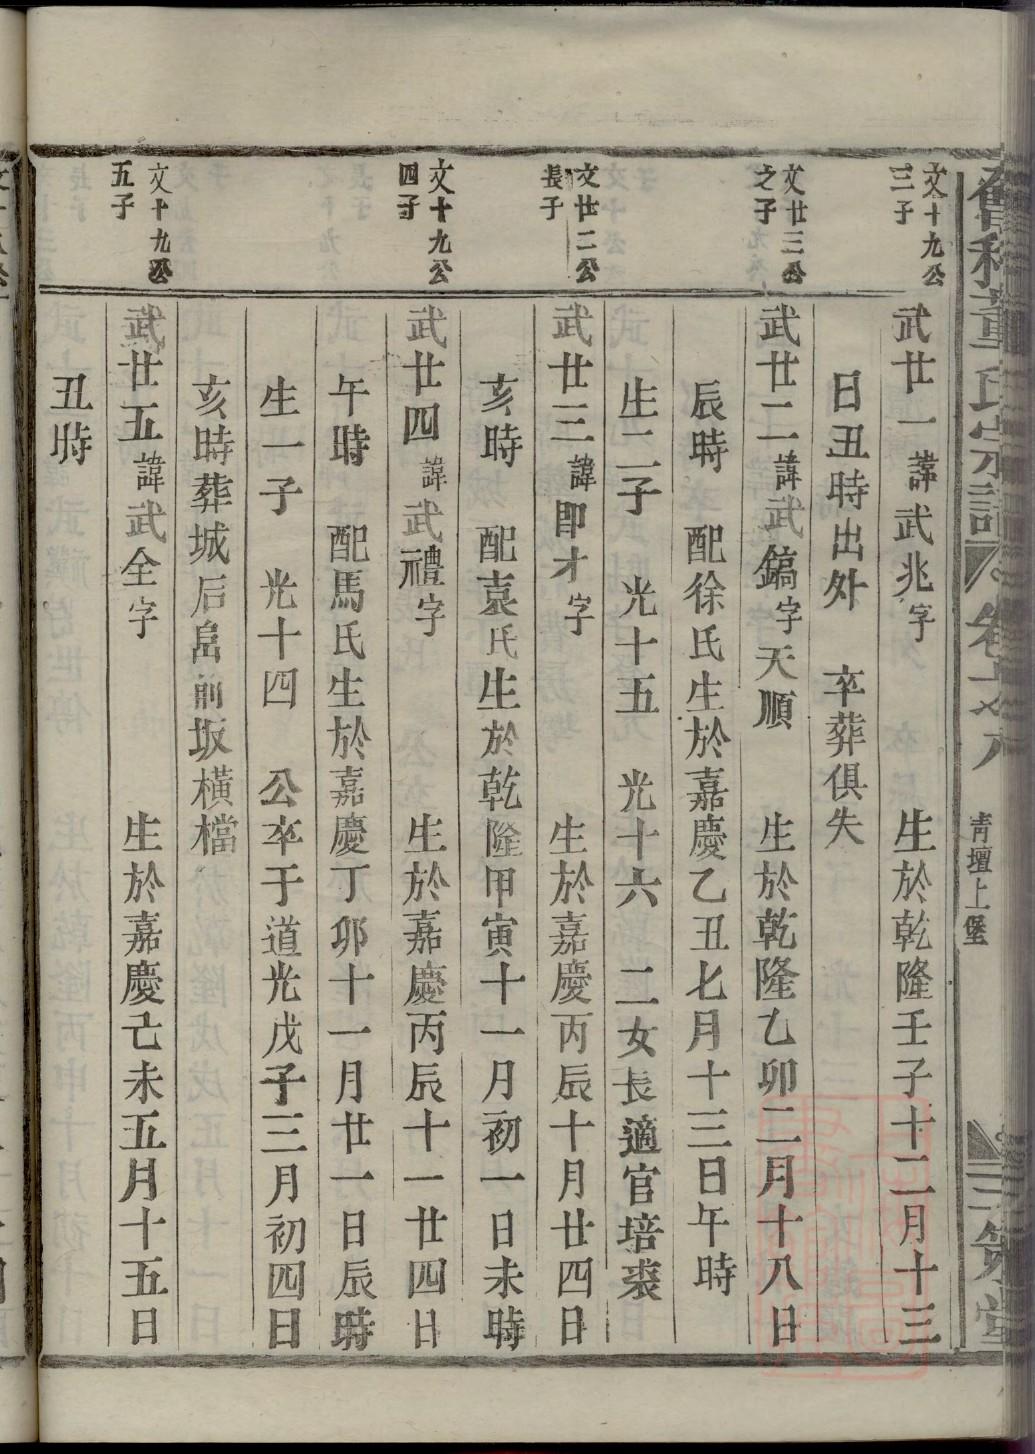 董氏宗譜 卷之 青壇上堡 堂
文十九公
三子
武廿一諱武兆字 生於乾隆壬子十二月十三
日丑時出外 卒葬俱失
文廿三公
之子
武廿二諱武鎬字天順 生於乾隆乙卯二月十八日
辰時 配徐氏生於嘉慶乙丑七月十三日午時
生二子 光十五 光十六 二女長適官培裘
文廿二公
長子
武廿三諱即才字 生於嘉慶丙辰十月廿四日
亥時 配袁氏生於乾隆甲寅十一月初一日未時
文十九公
四子
武廿四諱武禮字 生於嘉慶丙辰十一廿四日
午時 配馬氏生於嘉慶丁卯十一月廿一日辰時
生一子 光十四 公卒于道光戊子三月初四日
亥時葬城后畐前坂橫檔
文十九公
五子
武廿五諱武全字 生於嘉慶己未五月十五日
丑時